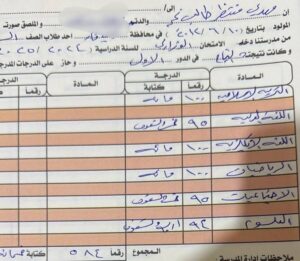 الى/
ان مهدي منتظر طالب والدته والملصق صورته
المولود بتاريخ (١٠/٦/٢٠١٢) في محافظة احد طلاب الصف
من مدرستنا دخل الامتحان الوزاري للسنة الدراسية (٢٠٢٤/٢٠٢٥)
وكانت نتيجته ناجح في الدور الاول وحاز على الدرجات المدرجة
المادة الدرجة المادة الدرجة
رقما كتابة رقما
التربية الاسلامية ١٠٠ مائة
اللغة العربية ٩٥ خمس وتسعون
اللغة الانكليزية ١٠٠ مائة
الرياضيات ١٠٠ مائة
الاجتماعيات ٩٥ خمس وتسعون
العلوم ٩٤ اربع وتسعون
المجموع رقما ٥٨٤ كتابة
ملاحظات ادارة المدرسة